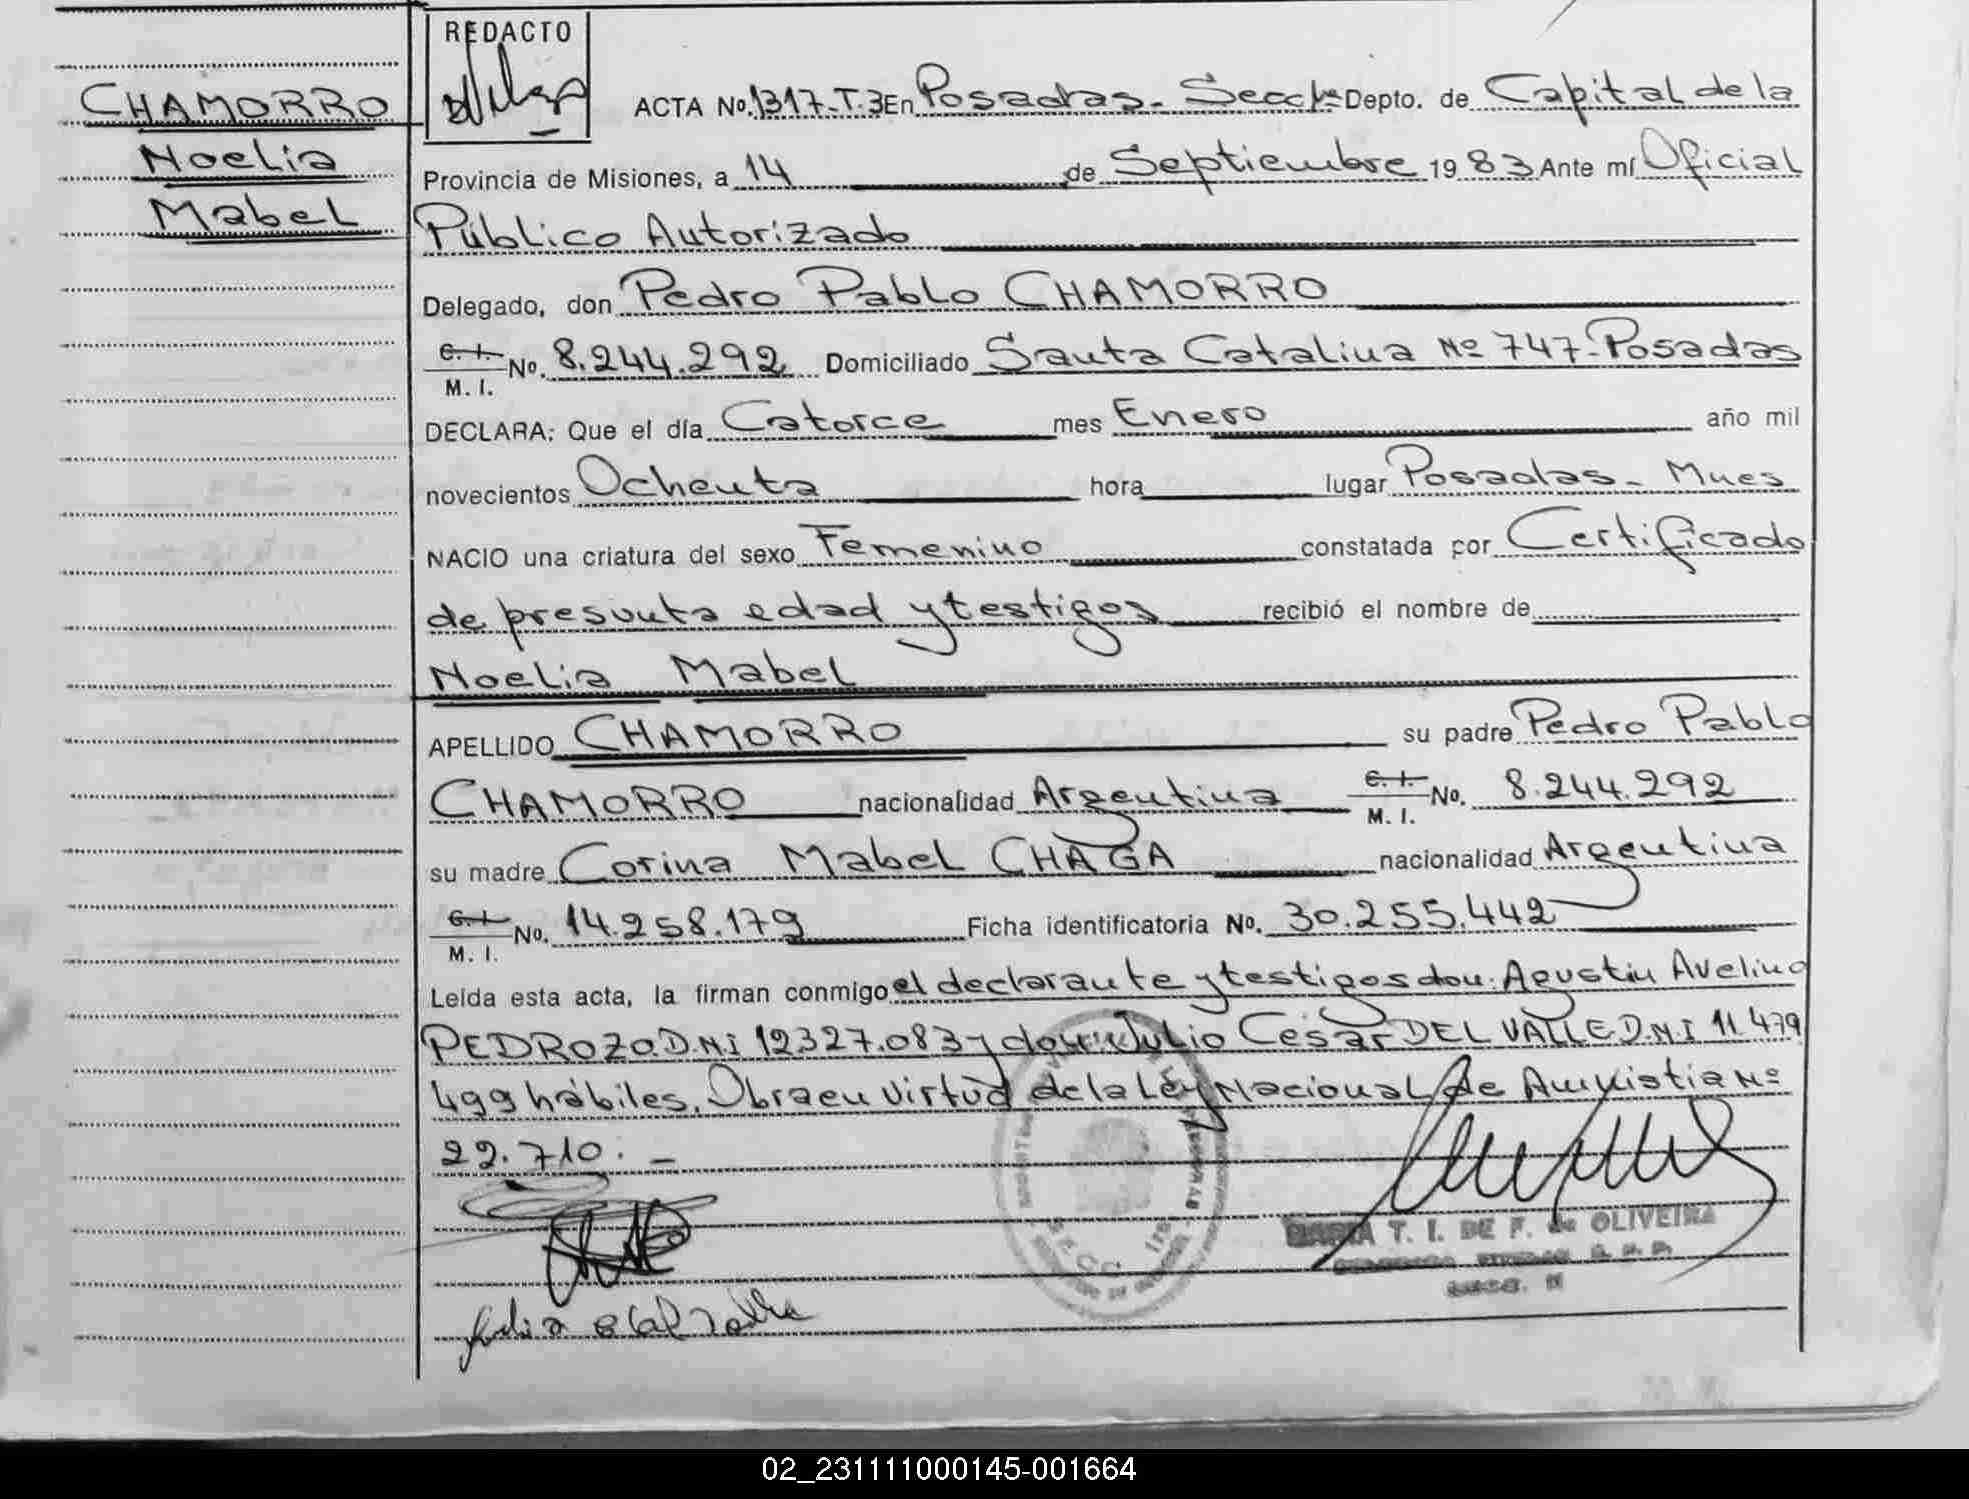 REDACTO
CHAMORRO
Noelia
Mabel
ACTA No. 1317-T.3 En Posadas - Secc 1ª Depto. de Capital de la
Provincia de Misiones, a 14 de Septiembre 1983 Ante mí Oficial
Público Autorizado
Delegado, don Pedro Pablo CHAMORRO
C. I. / M. I. No. 8.244.292 Domiciliado Santa Catalina Nº 747-Posadas
DECLARA: Que el día Catorce mes Enero año mil
novecientos Ochenta hora lugar Posadas - Mnes
NACIO una criatura del sexo Femenino constatada por Certificado
de presunta edad y testigos recibió el nombre de
Noelia Mabel
APELLIDO CHAMORRO su padre Pedro Pablo
CHAMORRO nacionalidad Argentina C. I. / M. I. No. 8.244.292
su madre Corina Mabel CHAGA nacionalidad Argentina
C. I. / M. I. No. 14.258.179 Ficha identificatoria No. 30.255.442
Leída esta acta, la firman conmigo el declarante y testigos don: Agustin Avelino
PEDROZO. D.N.I 12327.083 y don: Julio César DEL VALLE D.N.I 11.479
499 hábiles. Obra en virtud de la Ley Nacional de Amnistia Nº
22.710. -
T. I. DE F. de OLIVEIRA
02_231111000145-001664